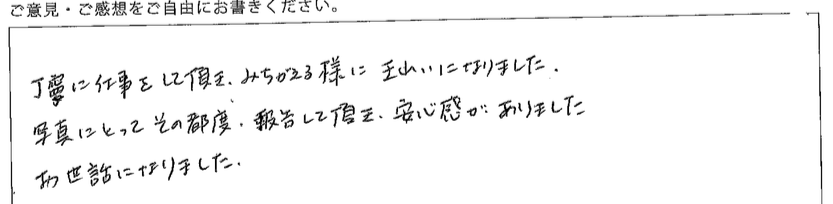 ご意見・ご感想をご自由にお書きください。
丁寧に仕事をして頂き、みちがえる様に キレいになりました.
写真にとって その都度、報告して頂き、安心感が ありました
お世話になりました.